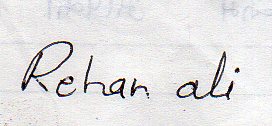 Rehan ali